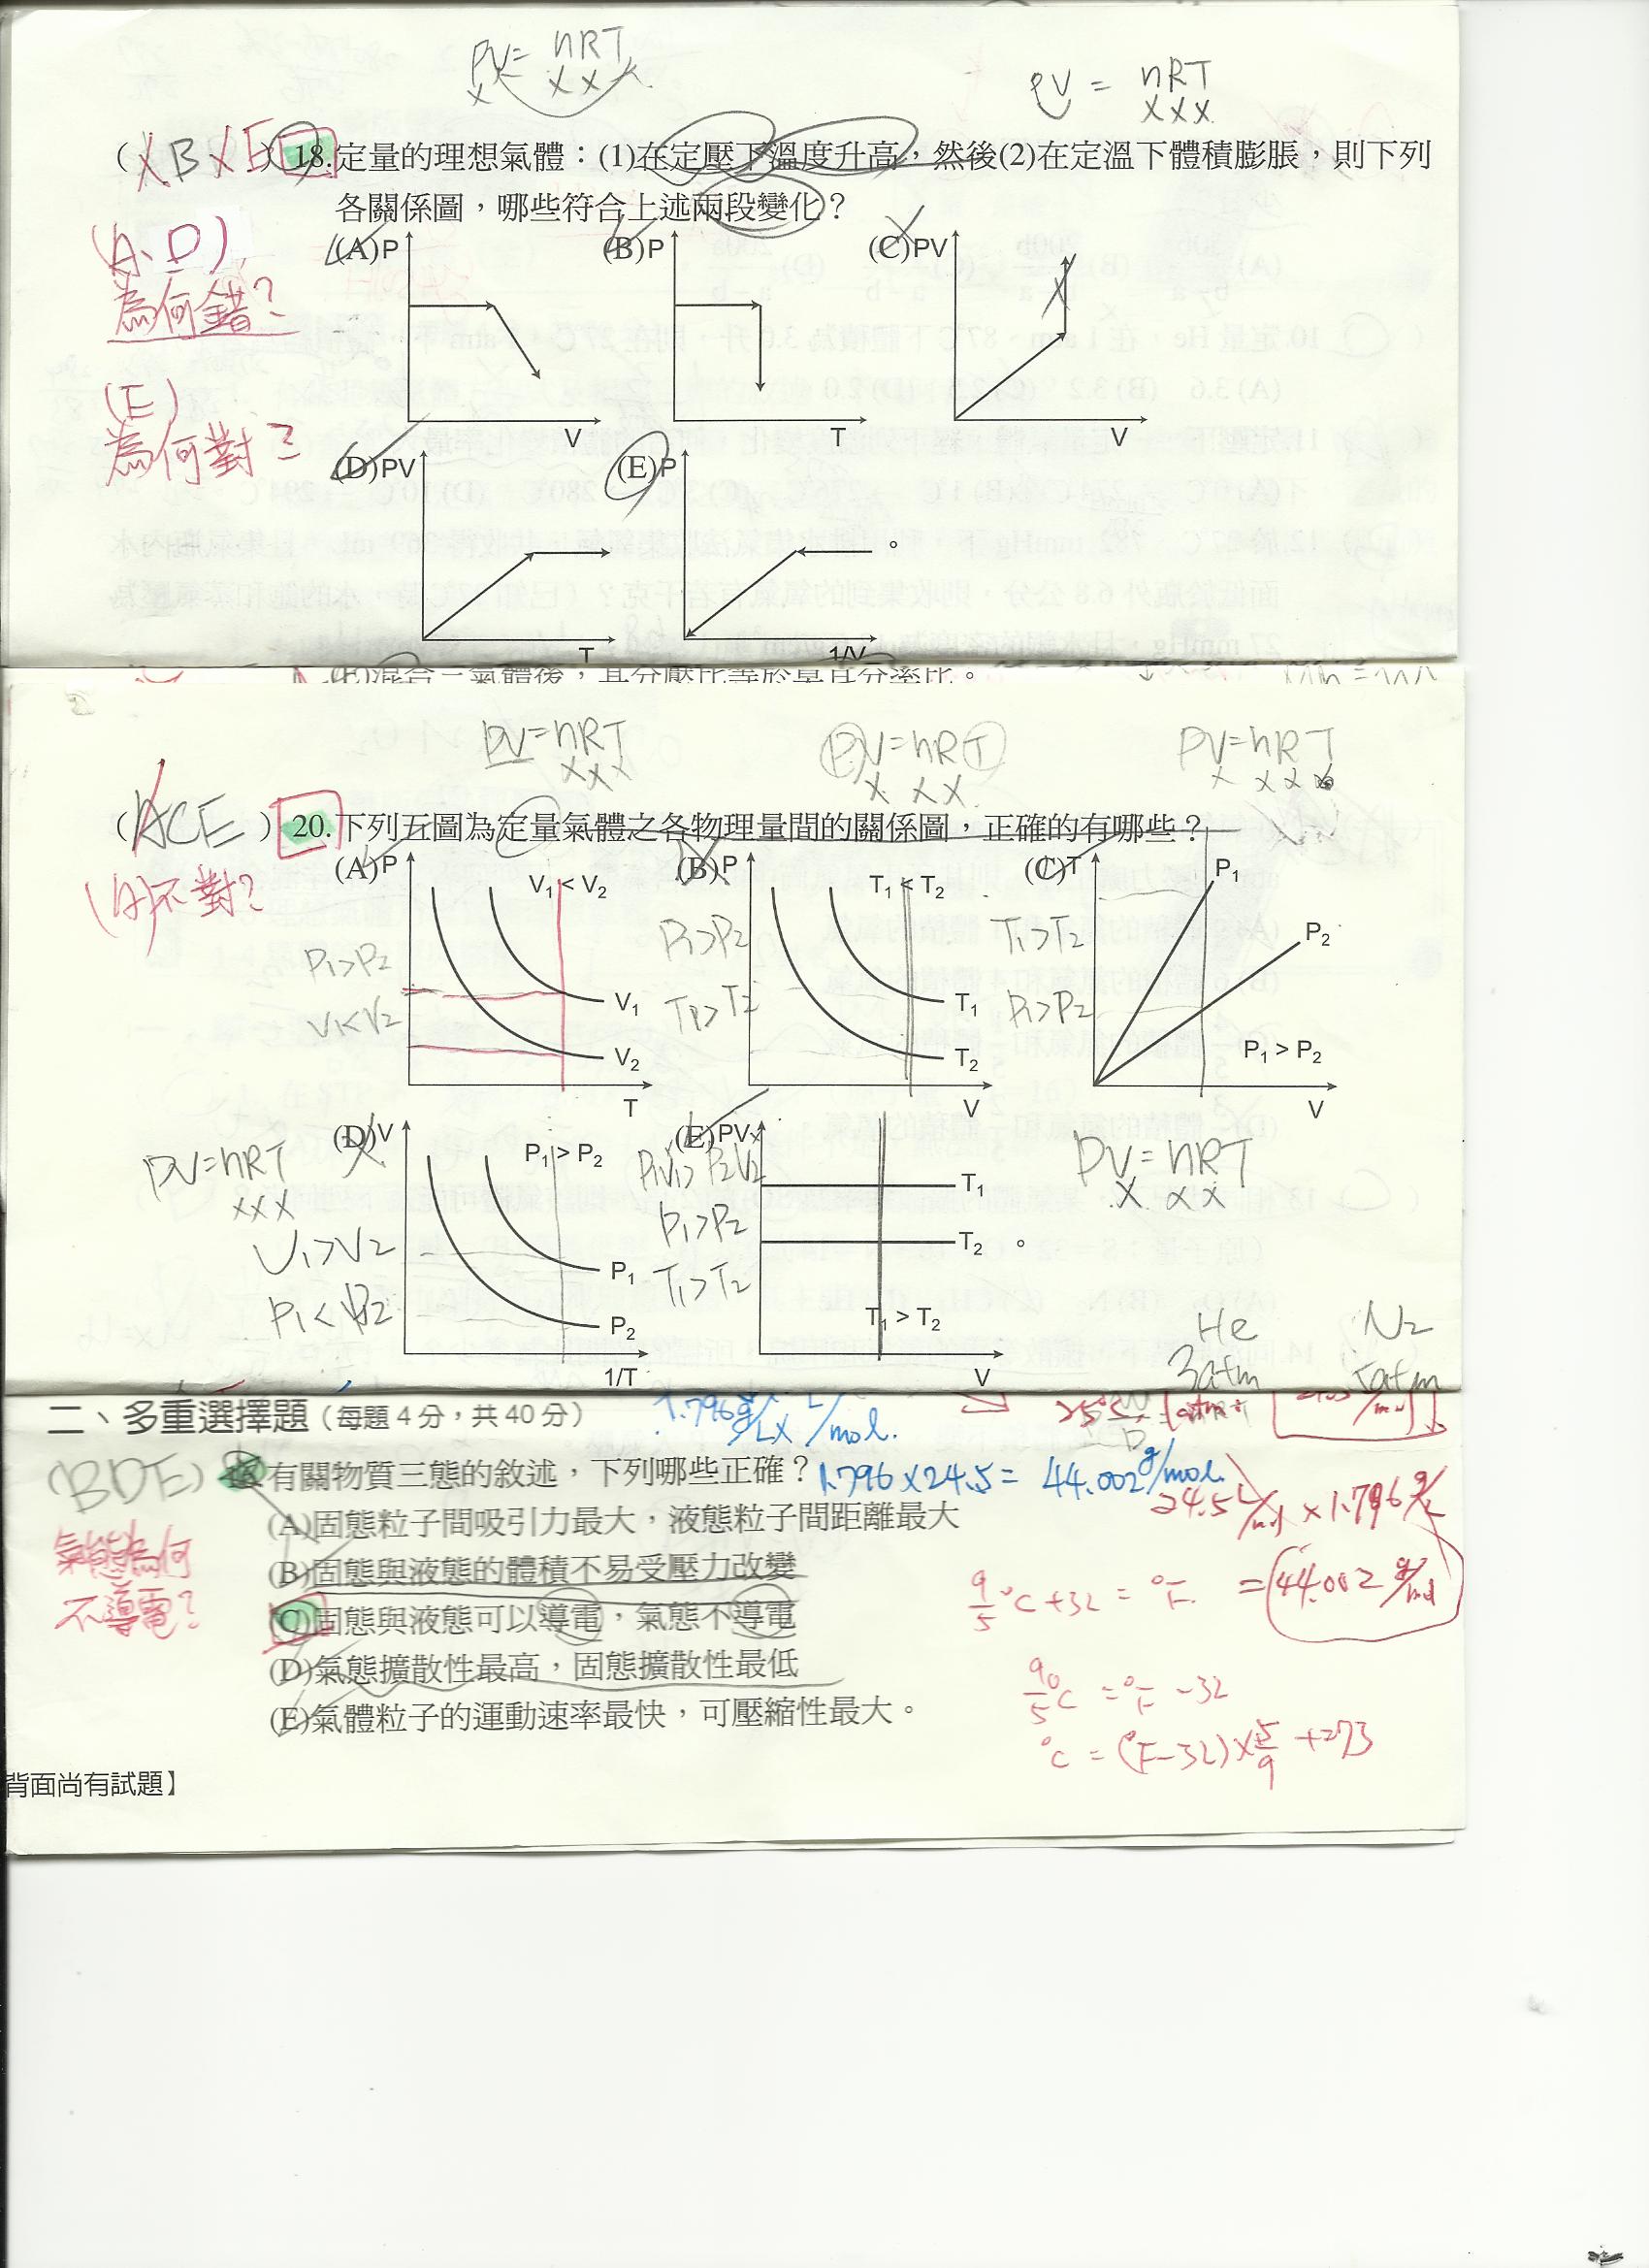 PV = nRT
x x x x
PV = nRT
x x x
(A B D E) 18.定量的理想氣體：(1)在定壓下溫度升高，然後(2)在定溫下體積膨脹，則下列
各關係圖，哪些符合上述兩段變化？
(A、D)
為何錯？
(E)
為何對？
(A)P V
(B)P T
(C)PV V
(D)PV T
(E)P 1/V 。
(E)混合三氣體後，其分壓比等於莫耳分率比。
PV=nRT
x x x
PV=nRT
x x x
PV=nRT
x x x x
(ACE) 20.下列五圖為定量氣體之各物理量間的關係圖，正確的有哪些？
(A)不對？
(A)P V₁ < V₂ V₁ V₂ T
P₁>P₂
V₁<V₂
(B)P T₁ < T₂ T₁ T₂ V
P₁>P₂
T₁>T₂
(C)T P₁ P₂ P₁ > P₂ V
T₁>T₂
P₁>P₂
(D)V P₁ > P₂ P₁ P₂ 1/T
PV=nRT
x x x
V₁>V₂
P₁<P₂
(E)PV T₁ T₂ 。 T₁ > T₂ V
P₁V₁>P₂V₂
P₁>P₂
T₁>T₂
PV = nRT
x x x
He N₂
3atm 5atm
二、多重選擇題（每題 4 分，共 40 分）
1.796 g/L x L/mol.
(BDE) 有關物質三態的敘述，下列哪些正確？
1.796 x 24.5 = 44.002 g/mol.
24.5 L/mol x 1.796 g/L
= 44.002 g/mol
(A)固態粒子間吸引力最大，液態粒子間距離最大
(B)固態與液態的體積不易受壓力改變
(C)固態與液態可以導電，氣態不導電
(D)氣態擴散性最高，固態擴散性最低
(E)氣體粒子的運動速率最快，可壓縮性最大。
氣態為何
不導電？
9/5 °C + 32 = °F.
9/5 °C = °F - 32
°C = (°F - 32) x 5/9 + 273
背面尚有試題】